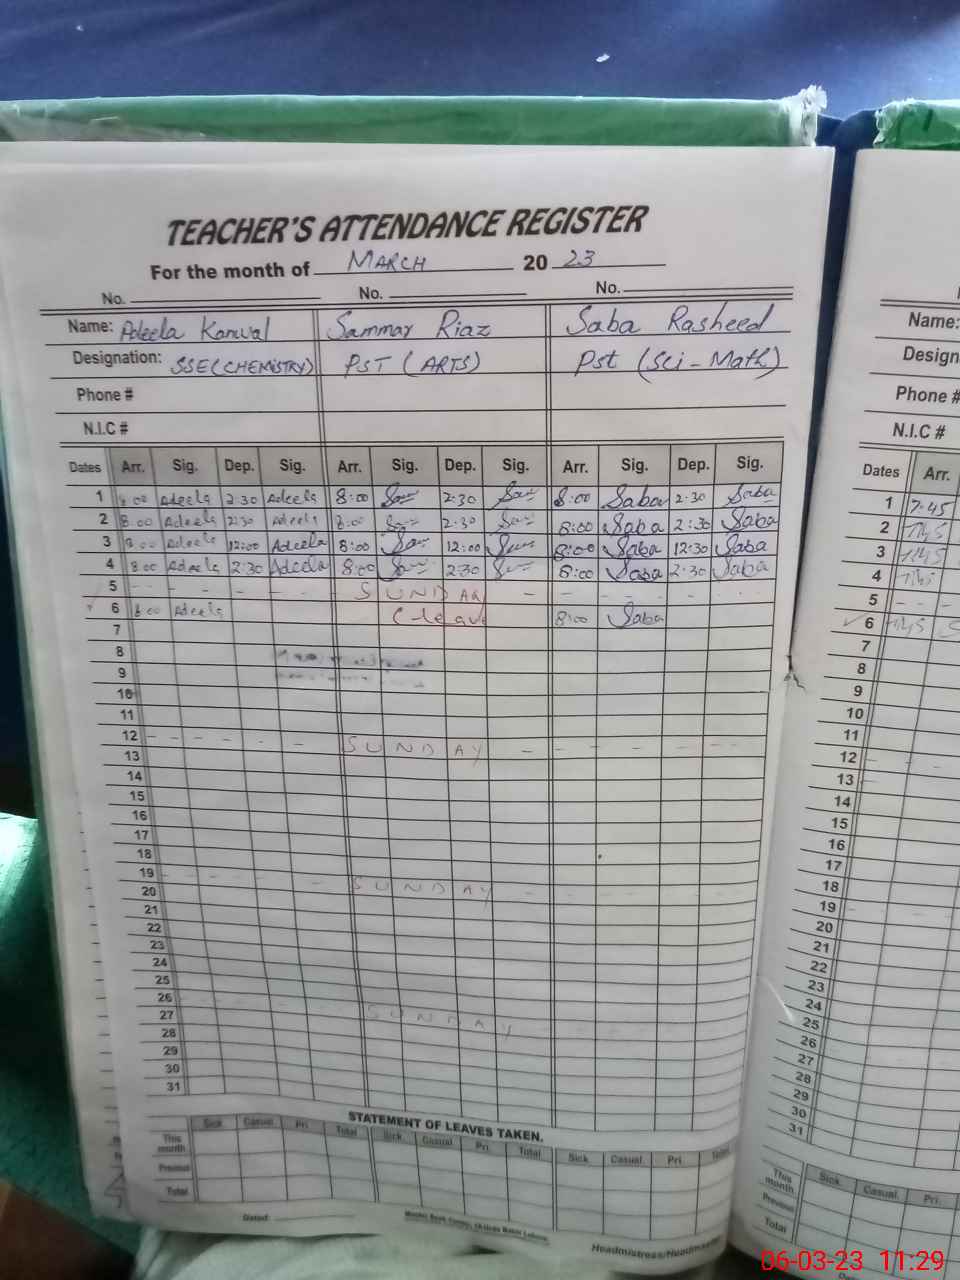 TEACHER'S ATTENDANCE REGISTER
For the month of MARCH 20 23
No. No. No.
Name: Adeela Kanwal Sammar Riaz Saba Rasheed
Designation: SSE(CHEMISTRY) PST (ARTS) Pst (Sci-Math)
Phone #
N.I.C #
Dates Arr. Sig. Dep. Sig. Arr. Sig. Dep. Sig. Arr. Sig. Dep. Sig.
1 8:00 Adeela 2:30 Adeela 8:00 2:30 8:00 Saba 2:30 Saba
2 8:00 Adeela 2:30 Adeela 8:00 2:30 8:00 Saba 2:30 Saba
3 8:00 Adeela 12:00 Adeela 8:00 12:00 8:00 Saba 12:30 Saba
4 8:00 Adeela 2:30 Adeela 8:00 2:30 8:00 Saba 2:30 Saba
5 SUNDAY
6 8:00 Adeela C-leave 8:00 Saba
7
8
9
10
11
12 SUNDAY
13
14
15
16
17
18
19 SUNDAY
20
21
22
23
24
25
26 SUNDAY
27
28
29
30
31
STATEMENT OF LEAVES TAKEN.
Sick. Casual Pri. Total Sick. Casual Pri. Total Sick. Casual. Pri. Total
This month
Previous
Total
Dated:
Headmistress/Headmaster
Name:
Design
Phone #
N.I.C #
Dates Arr.
1 7:45
2 7:45
3 7:45
4 7:45
5
6 7:45
7
8
9
10
11
12
13
14
15
16
17
18
19
20
21
22
23
24
25
26
27
28
29
30
31
Sick. Casual. Pri.
This month
Previous
Total
06-03-23 11:29